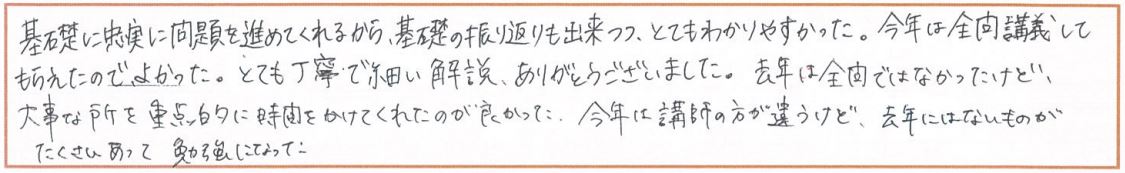 基礎に忠実に問題を進めてくれるから、基礎の振り返りも出来つつ、とてもわかりやすかった。今年は全問講義して
もらえたので、よかった。とても丁寧で細い解説、ありがとうございました。去年は全問ではなかったけど、
大事な所を重点的に時間をかけてくれたのが良かった。今年は講師の方が違うけど、去年にはないものが
たくさんあって勉強になった。